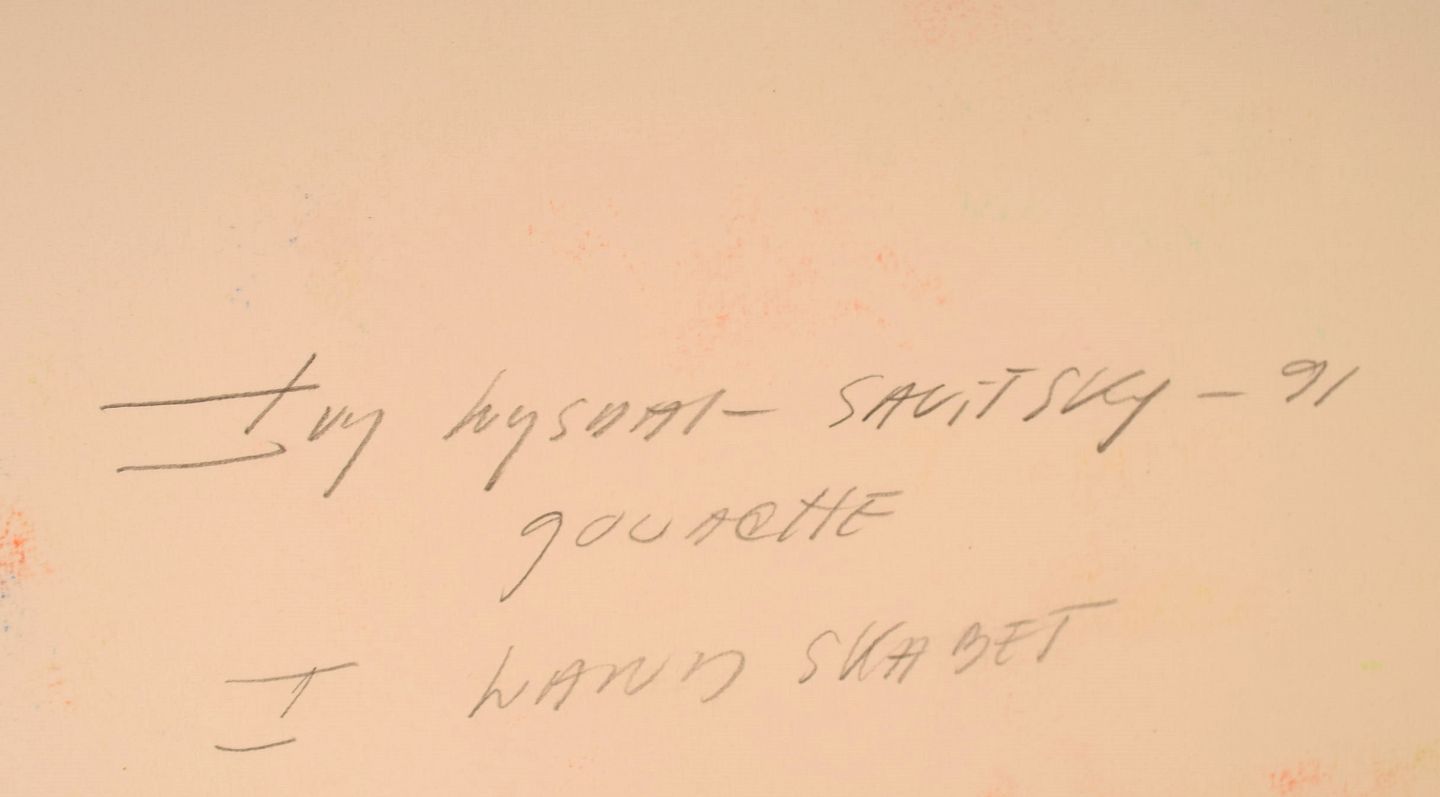 Ivy LySDAl– SAViTSKy – 91
gOUACHE
I LAND SKABET